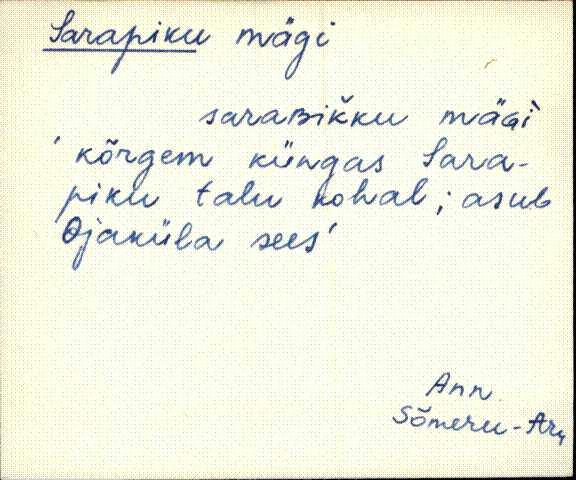 Sarapiku mägi
saraʙik̆ku mäɢì
'kõrgem küngas Sara-
piku talu kohal; asub
Ojaküla sees'
Ann
Sõmeru-Aru